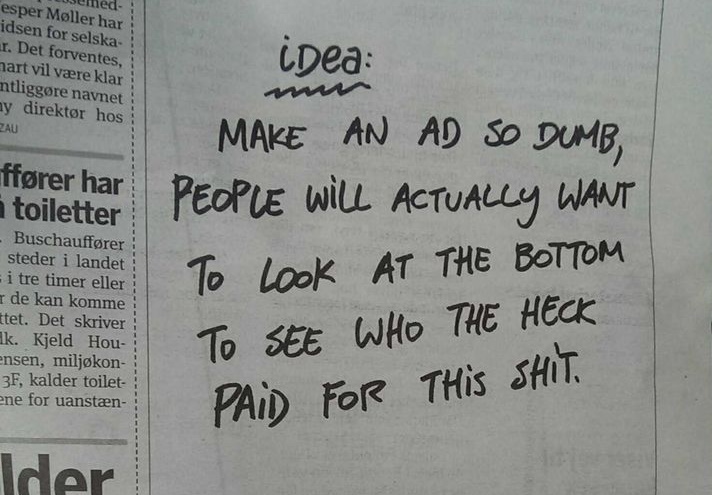 esper Møller har
idsen for selska-
r. Det forventes,
nart vil være klar
ntliggøre navnet
ny direktør hos
ZAU
ffører har
toiletter
. Buschauffører
steder i landet
s i tre timer eller
r de kan komme
ttet. Det skriver
lk. Kjeld Hou-
ensen, miljøkon-
3F, kalder toilet-
ene for uanstæn-
lder
iDea:
MAKE AN AD SO DUMB,
PEOPLE WiLL ACTUALLY WANT
To LOOK AT THE BOTTOM
To SEE WHO THE HECK
PAiD FOR THiS SHiT.